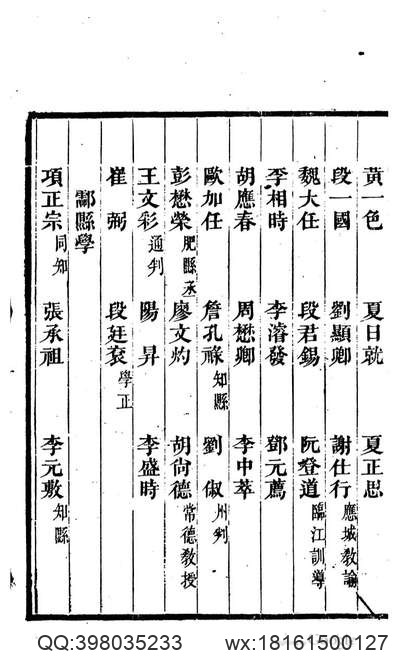 黃一色 夏日就 夏正思
段一國 劉顯卿 謝仕行應城教諭
魏大任 段君錫 阮登道臨江訓導
李相時 李濬發 鄧元薦
胡應春 周懋卿 李中萃
歐加任 詹孔祿知縣 劉俶州判
彭懋榮肥縣丞 廖文灼 胡尙德常德教授
王文彩通判 陽昇 李盛時
崔弼 段廷袞學正
酃縣學
項正宗同知 張承祖 李元敷知縣
QQ:398035233 wx:18161500127